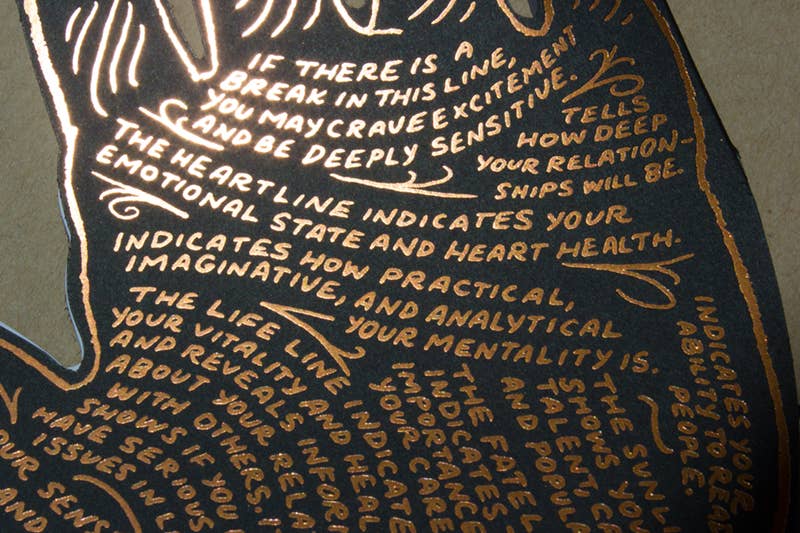 IF THERE IS A
BREAK IN THIS LINE,
YOU MAY CRAVE EXCITEMENT
AND BE DEEPLY SENSITIVE.
TELLS
HOW DEEP
YOUR RELATION-
SHIPS WILL BE.
THE HEART LINE INDICATES YOUR
EMOTIONAL STATE AND HEART HEALTH.
INDICATES HOW PRACTICAL,
IMAGINATIVE, AND ANALYTICAL
YOUR MENTALITY IS.
THE LIFE LINE INDICATE
YOUR VITALITY AND HEALT
AND REVEALS INFOR
ABOUT YOUR RELA
WITH OTHERS.
SHOWS IF YOU
HAVE SERIOUS
ISSUES IN L
OUR SENS
AND
THE FATE L
INDICATES
IMPORTANCE
YOUR CARE
AND POPUL
THE SUN LI
SHOWS YOU
TALENT, C
INDICATES YOUR
ABILITY TO REA
PEOPLE.